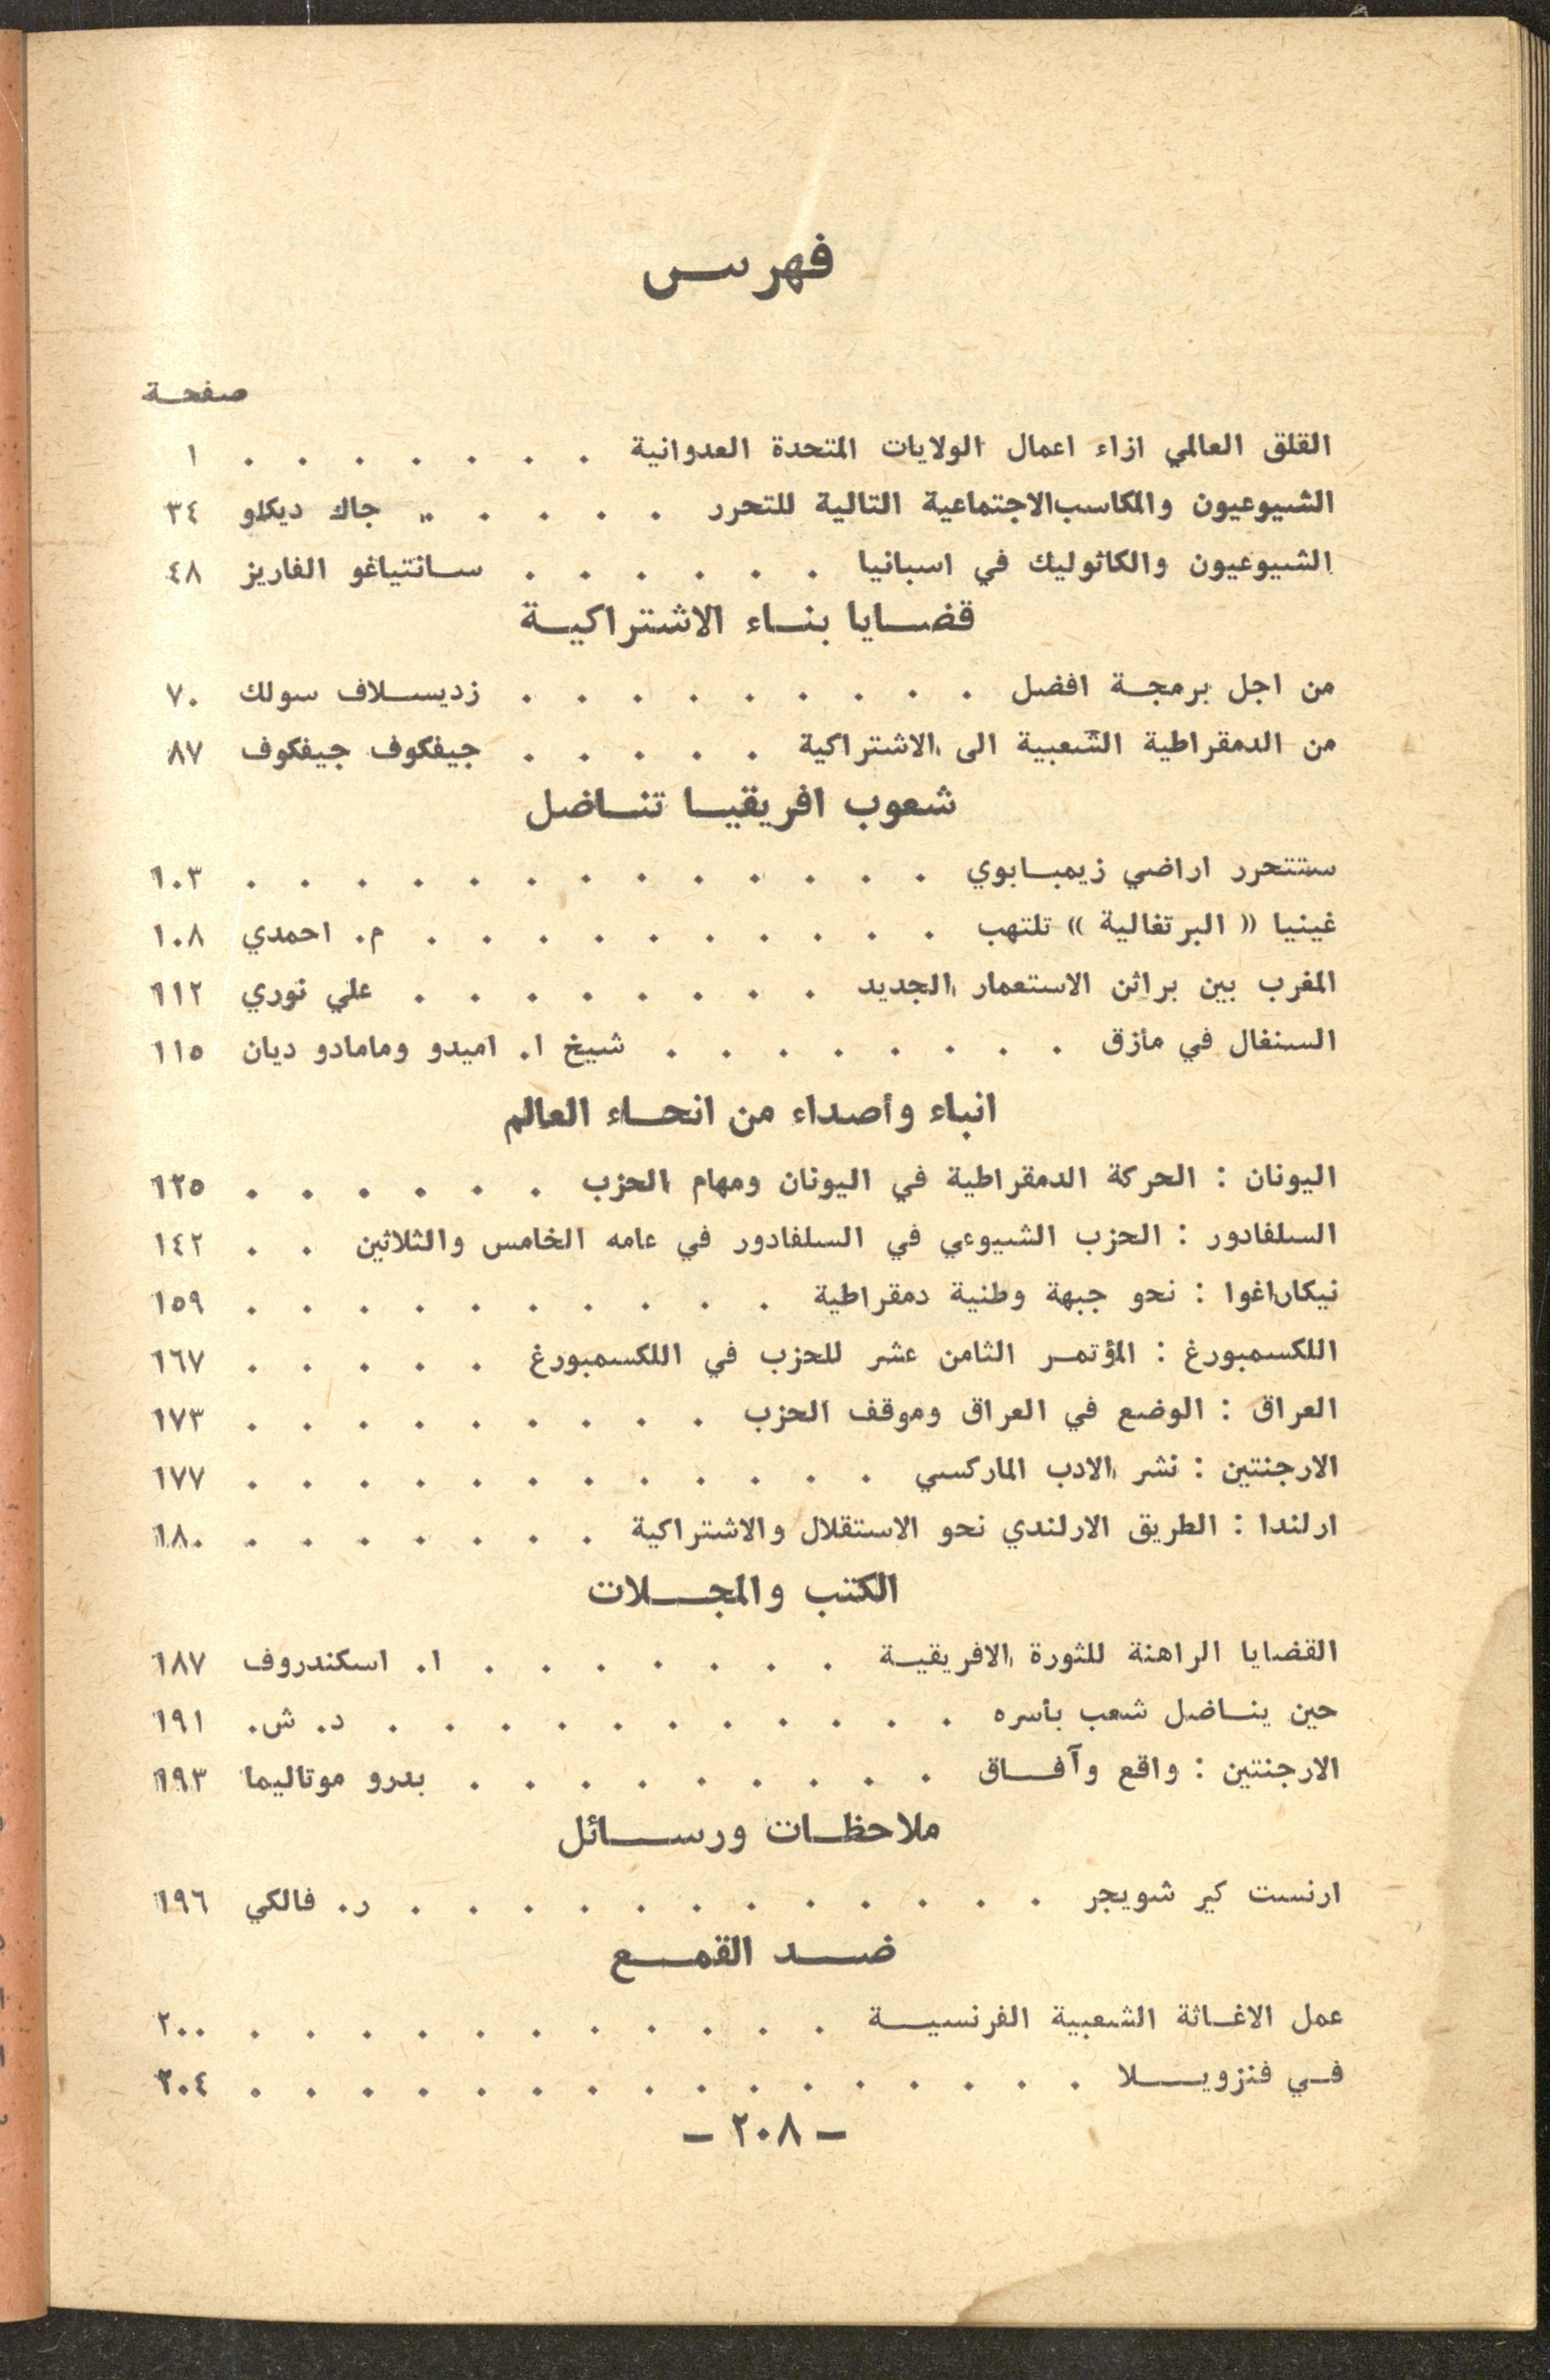 فهرس
صفحة
القلق العالمي ازاء اعمال الولايات المتحدة العدوانية . . . . . . . . ١
الشيوعيون والمكاسب الاجتماعية التالية للتحرر . . . . . جاك ديكلو ٣٤
الشيوعيون والكاثوليك في اسبانيا . . . . . . سانتياغو الفاريز ٤٨
قضايا بناء الاشتراكية
من اجل برمجة افضل . . . . . . . . . زديسلاف سولك ٧٠
من الدمقراطية الشعبية الى الاشتراكية . . . . . جيفكوف جيفكوف ٨٧
شعوب افريقيا تناضل
ستتحرر اراضي زيمبابوي . . . . . . . . . . . . . ١٠٣
غينيا « البرتغالية » تلتهب . . . . . . . . . . م. احمدي ١٠٨
المغرب بين براثن الاستعمار الجديد . . . . . . . . علي نوري ١١٢
السنغال في مأزق . . . . . . . . شيخ ا. اميدو ومامادو ديان ١١٥
انباء وأصداء من انحاء العالم
اليونان : الحركة الدمقراطية في اليونان ومهام الحزب . . . . . . ١٢٥
السلفادور : الحزب الشيوعي في السلفادور في عامه الخامس والثلاثين . . ١٤٢
نيكاراغوا : نحو جبهة وطنية دمقراطية . . . . . . . . . . ١٥٩
اللكسمبورغ : المؤتمر الثامن عشر للحزب في اللكسمبورغ . . . . . ١٦٧
العراق : الوضع في العراق وموقف الحزب . . . . . . . . . ١٧٣
الارجنتين : نشر الادب الماركسي . . . . . . . . . . . . ١٧٧
ارلندا : الطريق الارلندي نحو الاستقلال والاشتراكية . . . . . . . ١٨٠
الكتب والمجلات
القضايا الراهنة للثورة الافريقية . . . . . . . ا. اسكندروف ١٨٧
حين يناضل شعب بأسره . . . . . . . . . . . د. ش. ١٩١
الارجنتين : واقع وآفاق . . . . . . . . . بدرو موتاليما ١٩٣
ملاحظات ورسائل
ارنست كير شويجر . . . . . . . . . . . . ر. فالكي ١٩٦
ضد القمع
عمل الاغاثة الشعبية الفرنسية . . . . . . . . . . . ٢٠٠
في فنزويلا . . . . . . . . . . . . . . . . ٢٠٤
– ٢٠٨ –